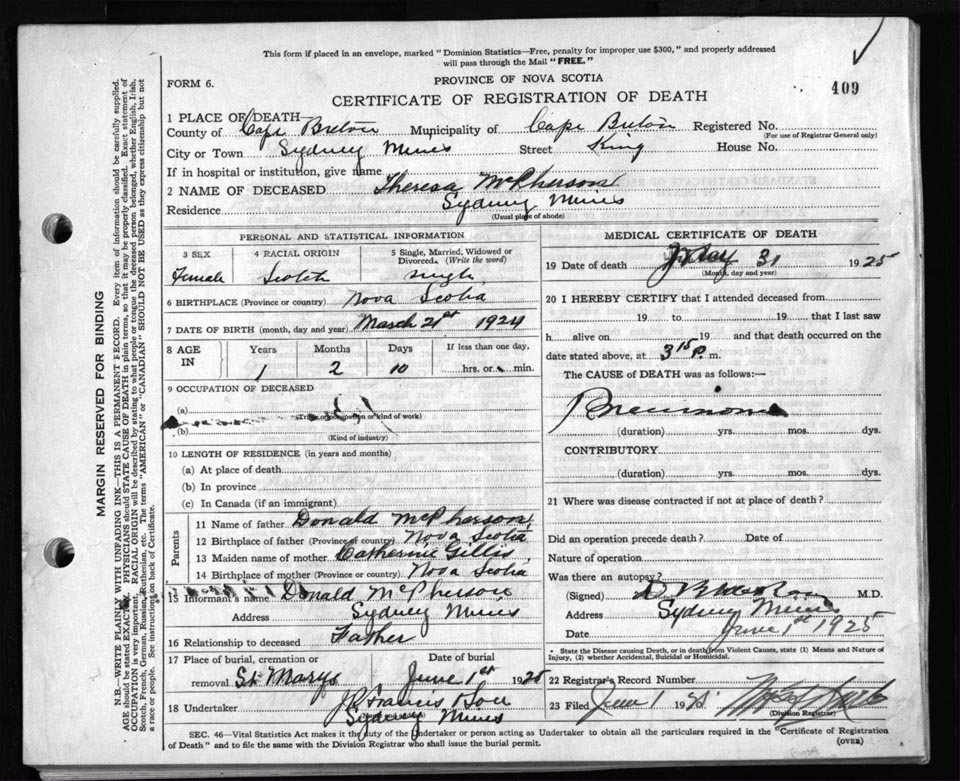 This form if placed in an envelope, marked "Dominion Statistics—Free, penalty for improper use $300," and properly addressed
will pass through the Mail "FREE."
FORM 6.
PROVINCE OF NOVA SCOTIA
409
CERTIFICATE OF REGISTRATION OF DEATH
1 PLACE OF DEATH—
County of Cape Breton Municipality of Cape Breton Registered No.
(For use of Registrar General only)
City or Town Sydney Mines Street King House No.
If in hospital or institution, give name
2 NAME OF DECEASED Theresa McPherson
Residence Sydney Mines
(Usual place of abode)
PERSONAL AND STATISTICAL INFORMATION
3 SEX 4 RACIAL ORIGIN 5 Single, Married, Widowed or
Divorced. (Write the word)
Female Scotch single
6 BIRTHPLACE (Province or country) Nova Scotia
7 DATE OF BIRTH (month, day and year) March 21st 1924
8 AGE IN Years Months Days If less than one day,
1 2 10 hrs. or min.
9 OCCUPATION OF DECEASED
(a)
(Trade, profession or kind of work)
(b)
(Kind of industry)
10 LENGTH OF RESIDENCE (in years and months)
(a) At place of death
(b) In province
(c) In Canada (if an immigrant)
Parents
11 Name of father Donald McPherson
12 Birthplace of father (Province or country) Nova Scotia
13 Maiden name of mother Catherine Gillis
14 Birthplace of mother (Province or country) Nova Scotia
15 Informant's name Donald McPherson
Address Sydney Mines
16 Relationship to deceased Father
17 Place of burial, cremation or Date of burial
removal St Marys June 1st 1925
18 Undertaker J Francis
Sydney Mines
MEDICAL CERTIFICATE OF DEATH
19 Date of death May 31 1925
(Month, day and year)
20 I HEREBY CERTIFY that I attended deceased from
19 to 19 that I last saw
h alive on 19 and that death occurred on the
date stated above, at 3 15 P. m.
The CAUSE of DEATH was as follows:—
Pneumonia
(duration) yrs. mos. dys.
CONTRIBUTORY
(duration) yrs. mos. dys.
21 Where was disease contracted if not at place of death?
Did an operation precede death? Date of
Nature of operation
Was there an autopsy?
(Signed) M.D.
Address Sydney Mines
Date June 1st 1925
* State the Disease causing Death, or in death from Violent Causes, state (1) Means and Nature of
Injury, (2) whether Accidental, Suicidal or Homicidal.
22 Registrar's Record Number
23 Filed June 1 19
(Division Registrar)
SEC. 46—Vital Statistics Act makes it the duty of the Undertaker or person acting as Undertaker to obtain all the particulars required in the "Certificate of Registration
of Death" and to file the same with the Division Registrar who shall issue the burial permit.
(OVER)
MARGIN RESERVED FOR BINDING
N.B.—WRITE PLAINLY WITH UNFADING INK—THIS IS A PERMANENT RECORD. Every item of information should be carefully supplied.
AGE should be stated EXACTLY. PHYSICIANS should STATE CAUSE OF DEATH in plain terms, so that it may be properly classified. Exact statement of
OCCUPATION is very important. RACIAL ORIGIN will be described by stating to what people or tongue the deceased person belonged, whether English, Irish,
Scotch, French, German, Russian, Ruthenian, etc. The terms "AMERICAN" or "CANADIAN" SHOULD NOT BE USED as they express citizenship but not
a race or people. See instructions on back of Certificate.